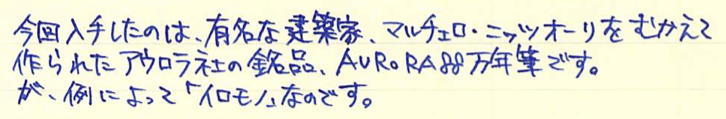 今回入手したのは、有名な建築家、マルチェロ・ニッツオーリをむかえて
作られたアウロラ社の銘品、AURORA88万年筆です。
が、例によって「イロモノ」なのです。